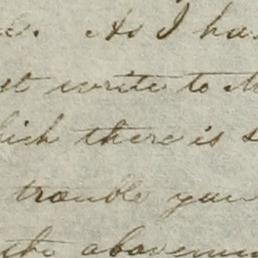 As I ha
st write to M
hich there is s
trouble you
the abovemen